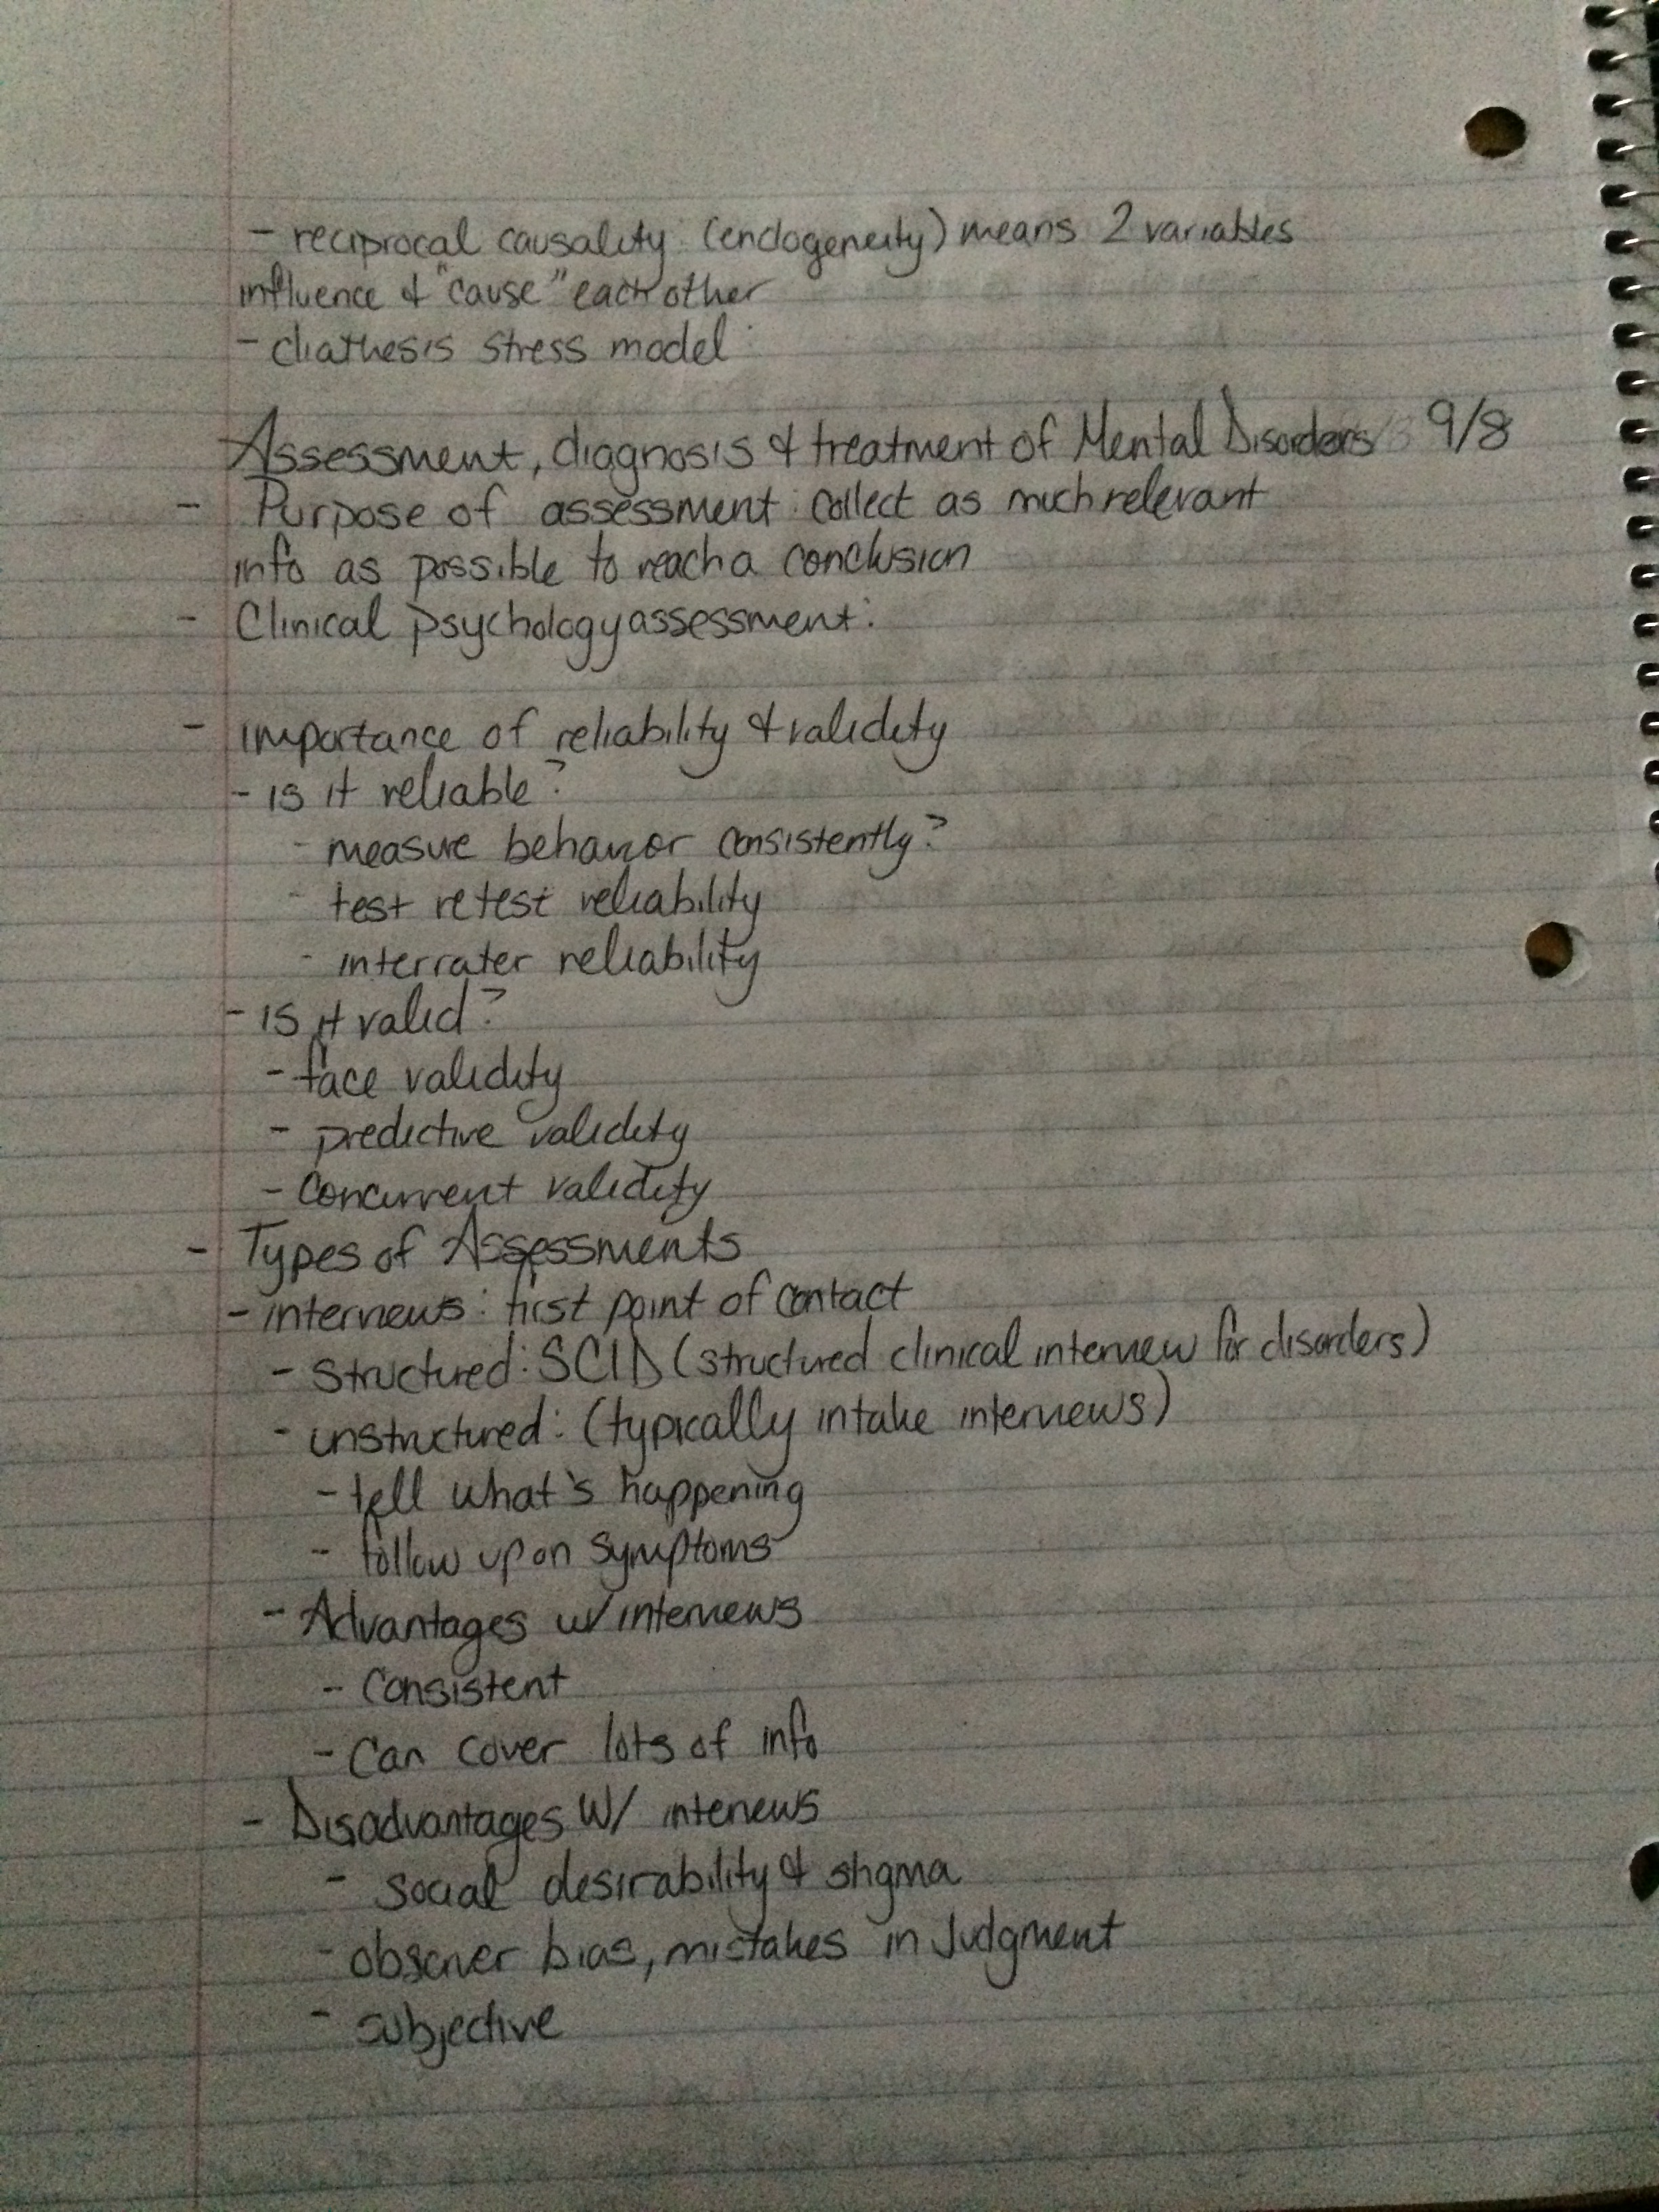 - reciprocal causality: (endogeneity) means 2 variables
influence & "cause" each other
- diathesis stress model:
Assessment, diagnosis & treatment of Mental Disorders 9/8
- Purpose of assessment: collect as much relevant
info as possible to reach a conclusion
- Clinical psychology assessment:
- importance of reliability & validity
- is it reliable?
- measure behavior consistently?
- test retest reliability
- interrater reliability
- is it valid?
- face validity
- predictive validity
- concurrent validity
- Types of Assessments
- interviews: first point of contact
- structured: SCID (structured clinical interview for disorders)
- unstructured: (typically intake interviews)
- tell what's happening
- follow up on symptoms
- Advantages w/ interviews
- Consistent
- Can cover lots of info
- Disadvantages w/ interviews
- social desirability & stigma
- observer bias, mistakes in judgment
- subjective